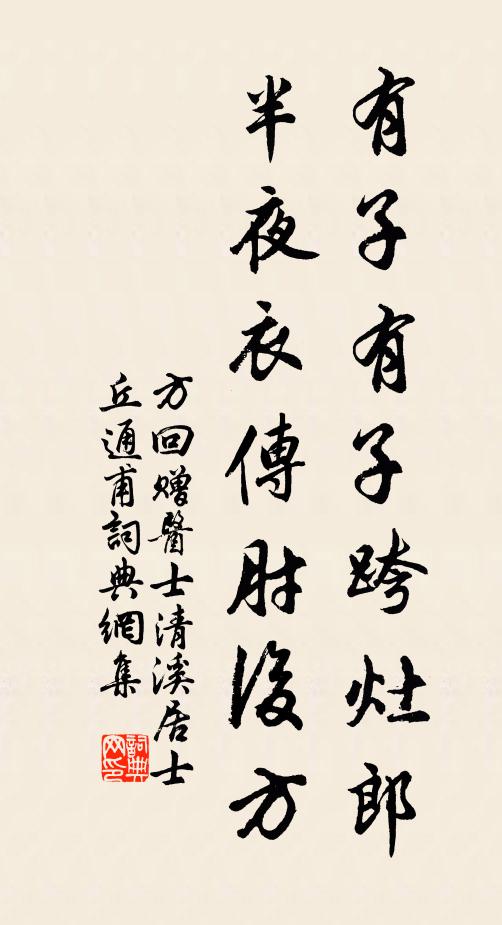 有子有子跨灶郎
半夜衣傳肘後方
方回赠醫士清溪居士
丘通甫詞典網集
詞典網印